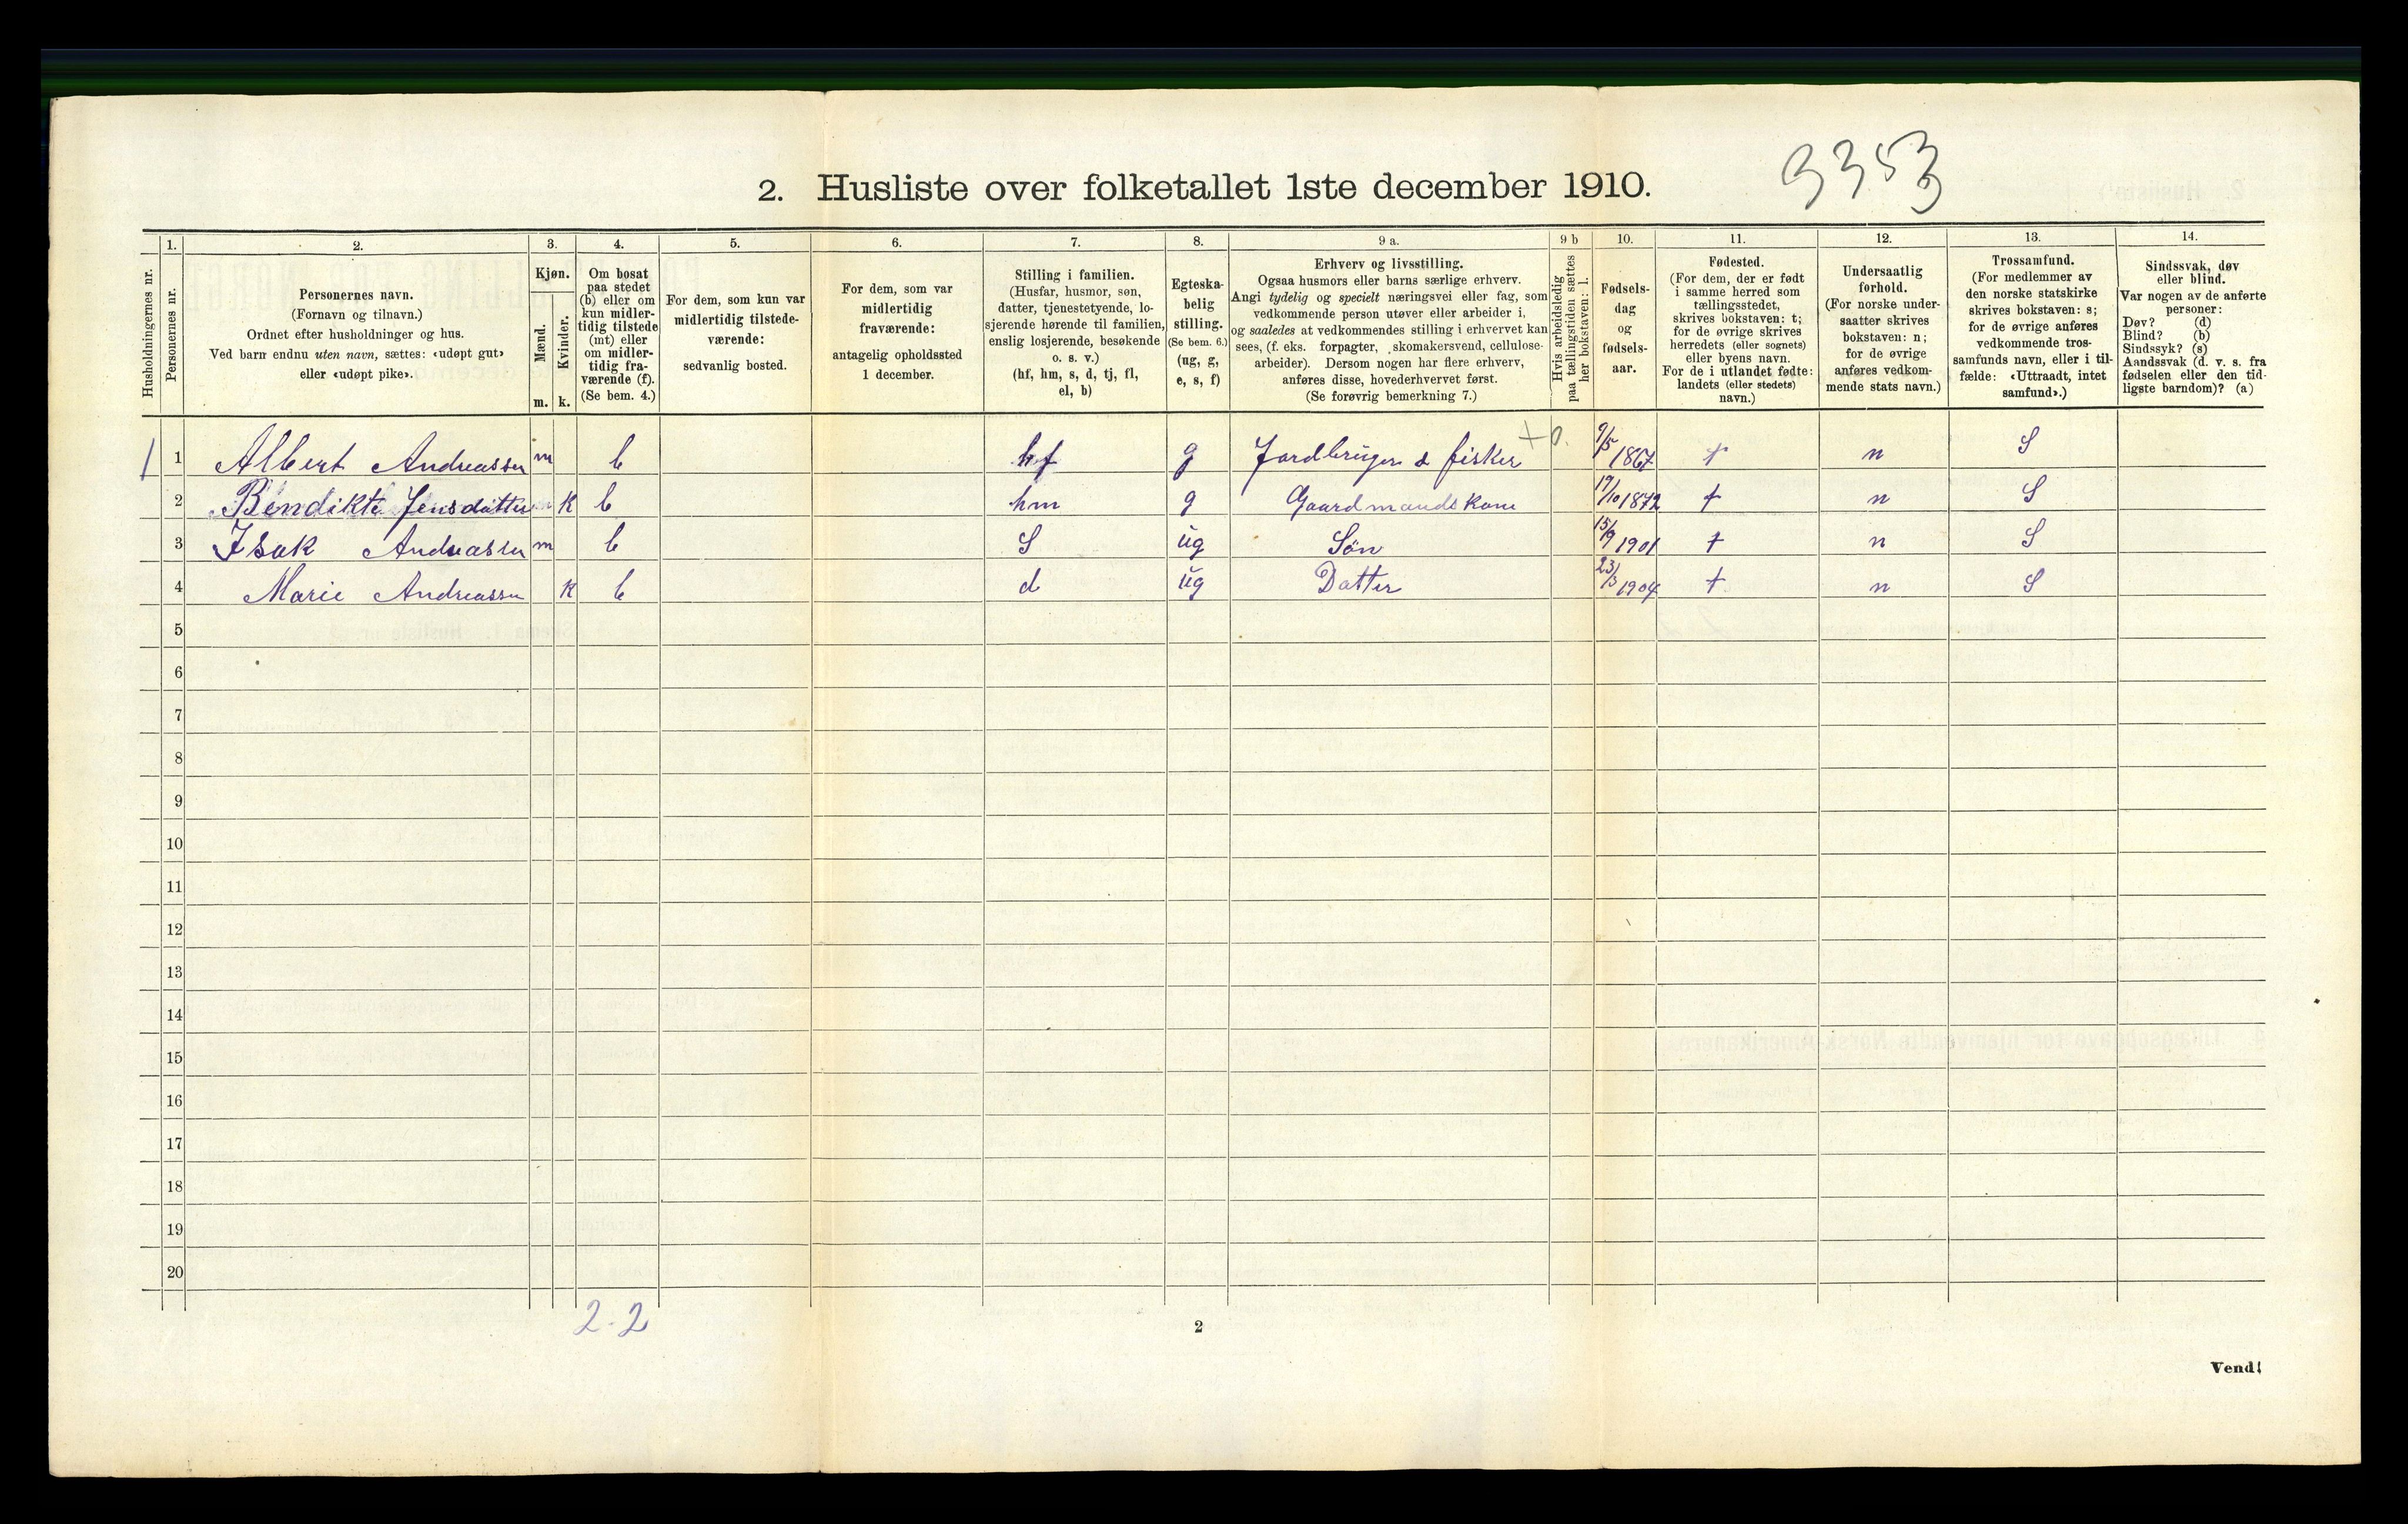 3353
2. Husliste over folketallet 1ste december 1910.
Husholdningernes nr.
1.
Personernes nr.
2.
Personernes navn.
(Fornavn og tilnavn.)
Ordnet efter husholdninger og hus.
Ved barn endnu uten navn, sættes: «udøpt gut»
eller «udøpt pike».
3.
Kjøn.
Mænd.
Kvinder.
m. k.
4.
Om bosat
paa stedet
(b) eller om
kun midler-
tidig tilstede
(mt) eller
om midler-
tidig fra-
værende (f).
(Se bem. 4.)
5.
For dem, som kun var
midlertidig tilstede-
værende:
sedvanlig bosted.
6.
For dem, som var
midlertidig
fraværende:
antagelig opholdssted
1 december.
7.
Stilling i familien.
(Husfar, husmor, søn,
datter, tjenestetyende, lo-
sjerende hørende til familien,
enslig losjerende, besøkende
o. s. v.)
(hf, hm, s, d, tj, fl,
el, b)
8.
Egteska-
belig
stilling.
(Se bem. 6.)
(ug, g,
e, s, f)
9 a.
Erhverv og livsstilling.
Ogsaa husmors eller barns særlige erhverv.
Angi tydelig og specielt næringsvei eller fag, som
vedkommende person utøver eller arbeider i,
og saaledes at vedkommendes stilling i erhvervet kan
sees, (f. eks. forpagter, skomakersvend, cellulose-
arbeider). Dersom nogen har flere erhverv,
anføres disse, hovederhvervet først.
(Se forøvrig bemerkning 7.)
9 b
Hvis arbeidsledig
paa tællingstiden sættes
her bokstaven: l.
10.
Fødsels-
dag
og
fødsels-
aar.
11.
Fødested.
(For dem, der er født
i samme herred som
tællingsstedet,
skrives bokstaven: t;
for de øvrige skrives
herredets (eller sognets)
eller byens navn.
For de i utlandet fødte:
landets (eller stedets)
navn.)
12.
Undersaatlig
forhold.
(For norske under-
saatter skrives
bokstaven: n;
for de øvrige
anføres vedkom-
mende stats navn.)
13.
Trossamfund.
(For medlemmer av
den norske statskirke
skrives bokstaven: s;
for de øvrige anføres
vedkommende tros-
samfunds navn, eller i til-
fælde: «Uttraadt, intet
samfund».)
14.
Sindssvak, døv
eller blind.
Var nogen av de anførte
personer:
Døv? (d)
Blind? (b)
Sindssyk? (s)
Aandssvak (d. v. s. fra
fødselen eller den tid-
ligste barndom)? (a)
1 1 Albert Andreassen m b hf g Jordbruger & fisker + 0. 9/5 1867 t n S
2 Bendikte Jensdatter k b hm g Gaardmandskone 19/10 1872 t n S
3 Isak Andreassen m b S ug Søn 15/9 1901 t n S
4 Marie Andreassen k b d ug Datter 23/3 1904 t n S
5
6
7
8
9
10
11
12
13
14
15
16
17
18
19
20
2-2
2
Vend!